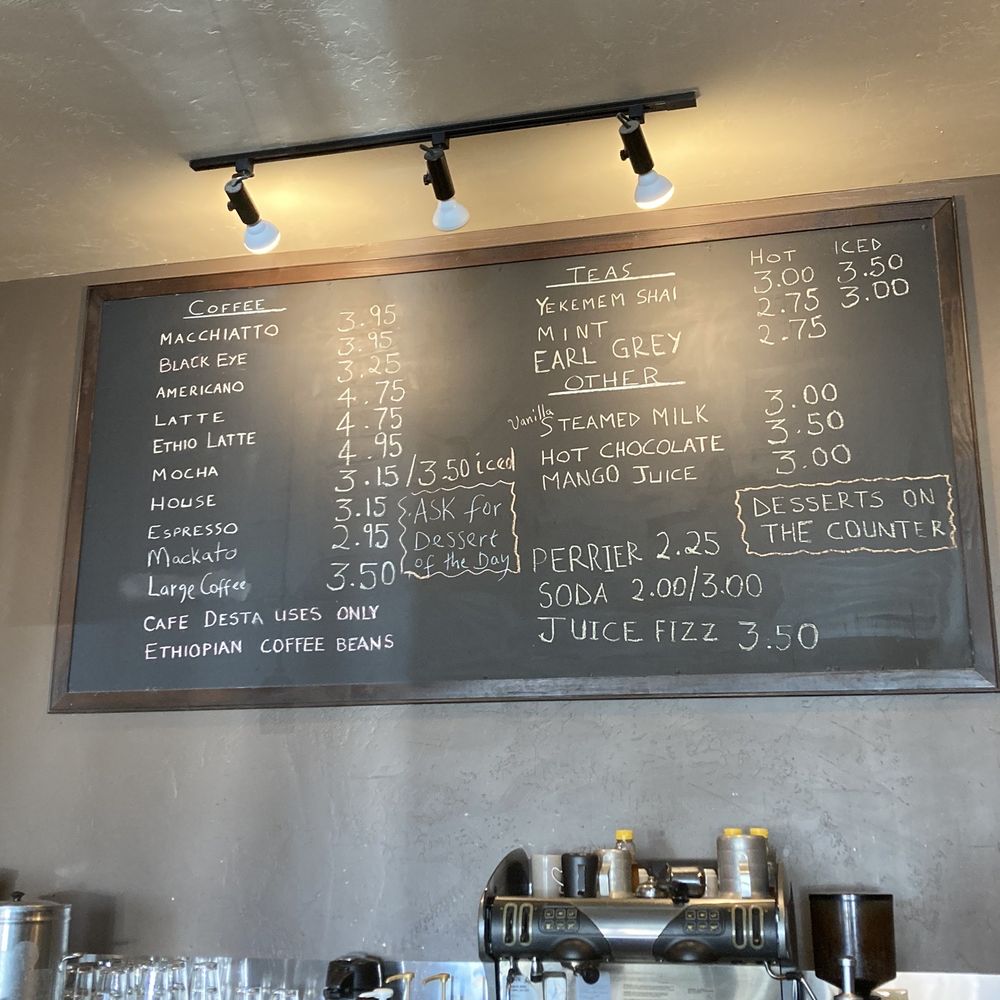 COFFEE
MACCHIATTO 3.95
BLACK EYE 3.95
AMERICANO 3.25
LATTE 4.75
ETHIO LATTE 4.75
MOCHA 4.95
HOUSE 3.15/3.50 iced
ESPRESSO 3.15
Mackato 2.95
Large Coffee 3.50
CAFE DESTA USES ONLY
ETHIOPIAN COFFEE BEANS
ASK for
Dessert
of the Day
TEAS HOT ICED
YEKEMEM SHAI 3.00 3.50
MINT 2.75 3.00
EARL GREY 2.75
OTHER
Vanilla STEAMED MILK 3.00
HOT CHOCOLATE 3.50
MANGO JUICE 3.00
DESSERTS ON
THE COUNTER
PERRIER 2.25
SODA 2.00/3.00
JUICE FIZZ 3.50